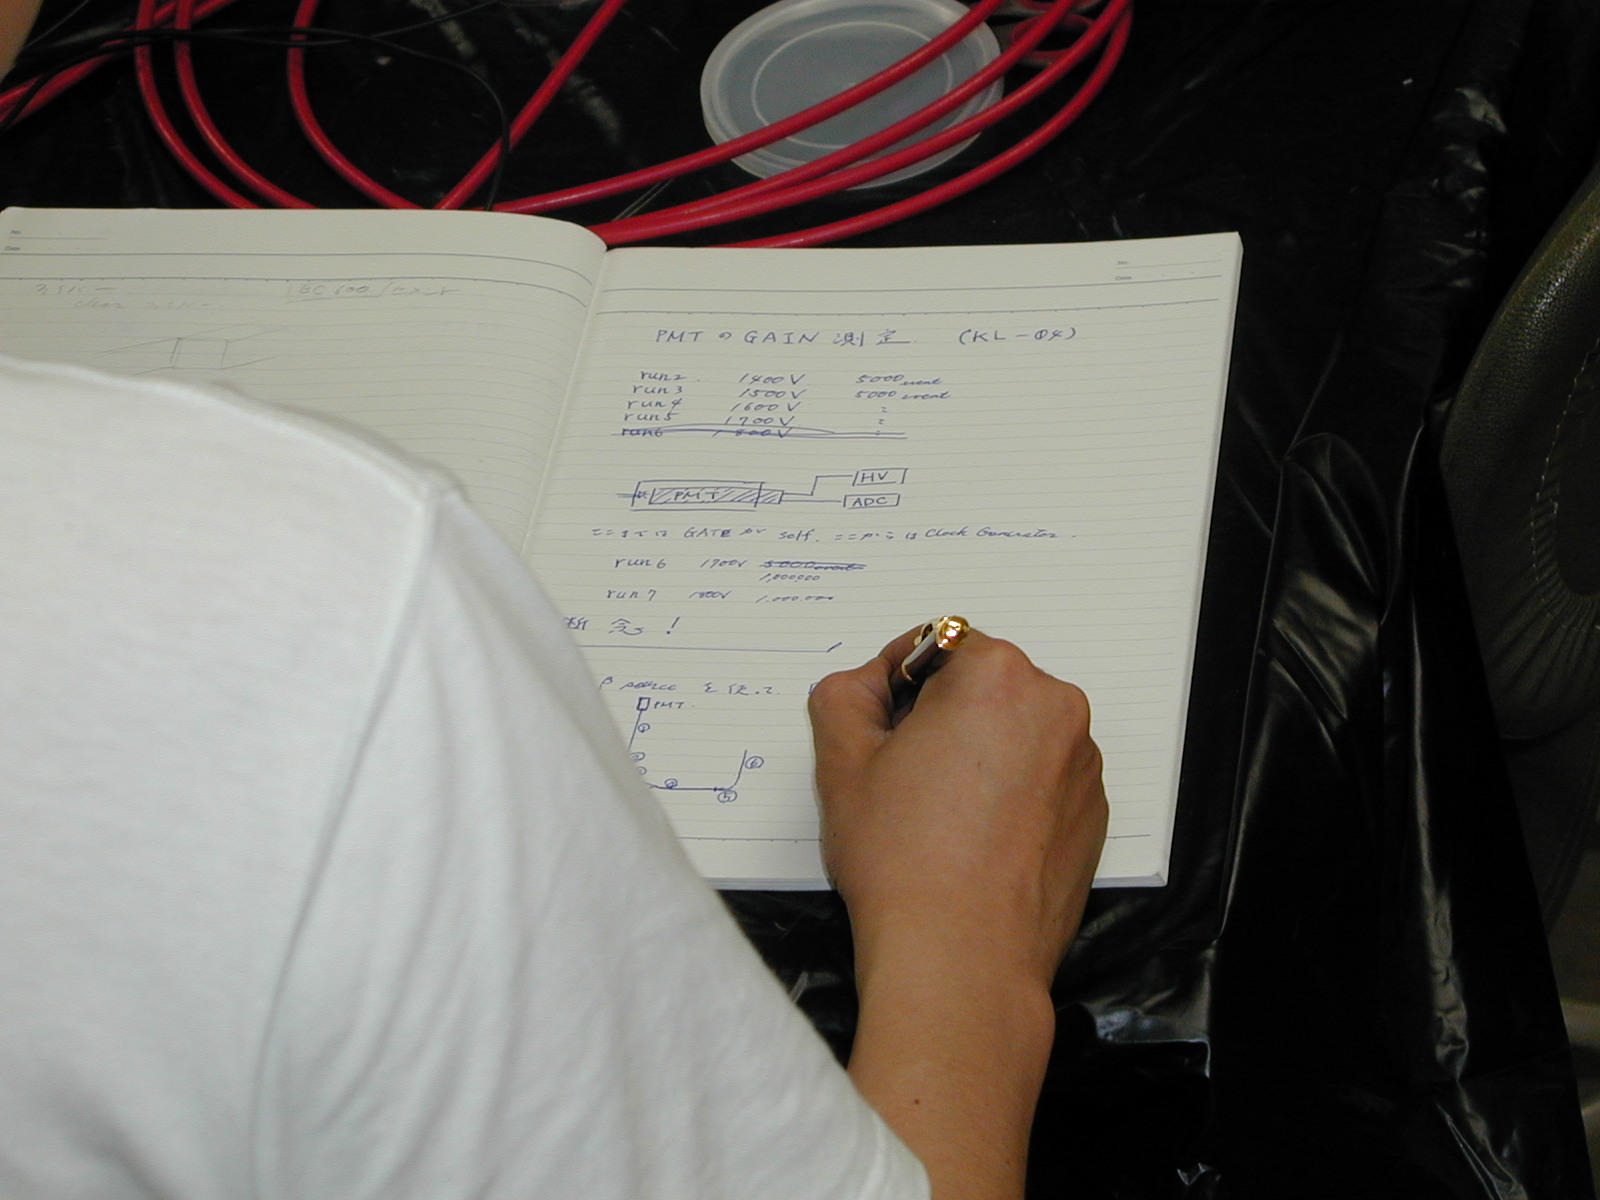 No.
Date
ファイバー
clear ファイバー
No.
Date
PMTのGAIN 測定. (KL-04)
run2. 1400V 5000event
run3 1500V 5000event
run4 1600V 〃
run5 1700V 〃
run6 1800V 〃
HV
PMT
ADC
ここまでは GATEが self. ここからは Clock Generator.
run6 1700V 5000event
1,000,000
run7 1800V 1,000,000
断念!
β source を使って
PMT.
①
②
③
④
⑤
⑥